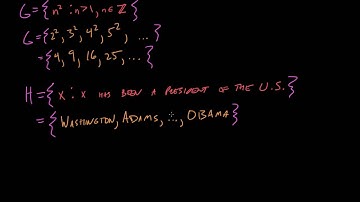 G={n² : n>1, n∈ℤ}
G={2², 3², 4², 5², ...}
={4, 9, 16, 25, ...}
H={x : x HAS BEEN A PRESIDENT OF THE U.S.}
={WASHINGTON, ADAMS, ..., OBAMA}